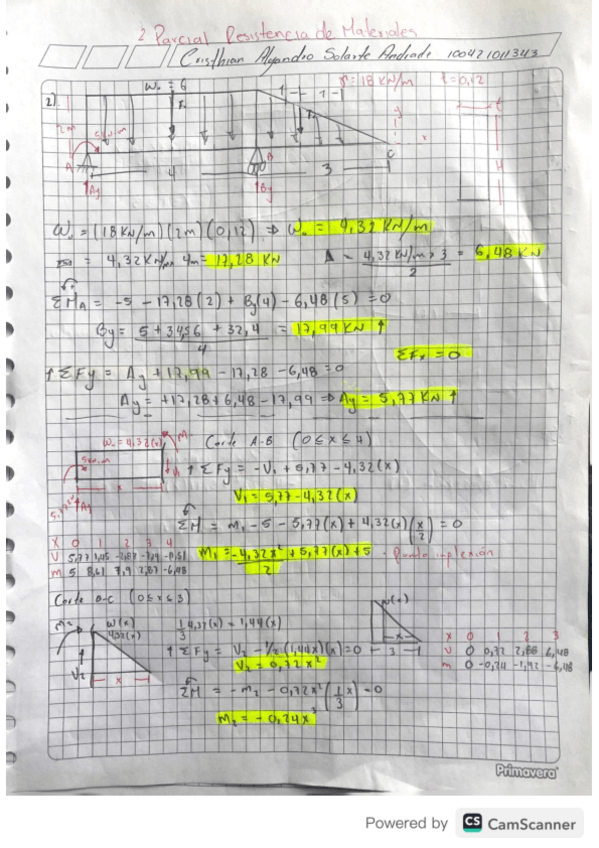 2 Parcial Resistencia de Materiales
Cristhian Alejandro Solarte Andrade 100421011343
2)
W₀ = 6
γ = 18 KN/m
t = 0,12
2m
5KN.m
A
B
C
4
3
Ay
By
t
H
W₀ = (18 KN/m)(2m)(0,12) ⇒ W₀ = 4,32 KN/m
= 4,32 KN/m x 4m = 17,28 KN
A = 4,32 KN/m x 3 / 2 = 6,48 KN
ΣMA = -5 - 17,28(2) + By(4) - 6,48(5) = 0
By = 5 + 34,56 + 32,4 / 4 = 17,99 KN ↑
ΣFx = 0
↑ΣFy = Ay + 17,99 - 17,28 - 6,48 = 0
Ay = +17,28 + 6,48 - 17,99 ⇒ Ay = 5,77 KN ↑
W₀ = 4,32(x)
M
5KN.m
V₁
x
Ay
Corte A-B (0 ≤ x ≤ 4)
↑ ΣFy = -V₁ + 5,77 - 4,32(x)
V₁ = 5,77 - 4,32(x)
ΣM = M₁ - 5 - 5,77(x) + 4,32(x)(x/2) = 0
M₁ = -4,32x²/2 + 5,77(x) + 5
x 0 1 2 3 4
V 5,77 1,45 -2,87 -7,19 -11,51
m 5 8,61 7,9 2,87 -6,48
Corte B-C (0 ≤ x ≤ 3)
W(x)
4,32(x)
V₂
x
1/3 4,32(x) = 1,44(x)
↑ ΣFy = V₂ - 1/2(1,44x)(x) = 0
V₂ = 0,72x²
W(x)
x
3
x 0 1 2 3
V 0 0,72 2,88 6,48
m 0 -0,24 -1,92 -6,48
ΣM = -M₂ - 0,72x²(1/3 x) = 0
M₂ = -0,24x³
Primavera
Powered by CS CamScanner